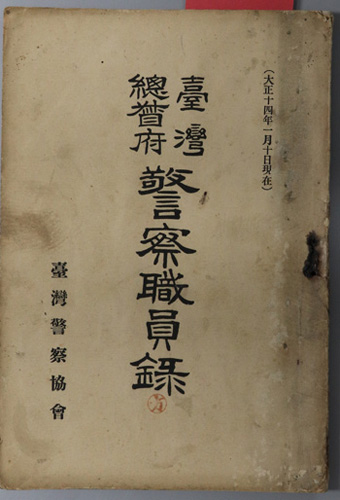 (大正十四年一月十日現在)
臺灣
總督府
警察職員錄
臺灣警察協會